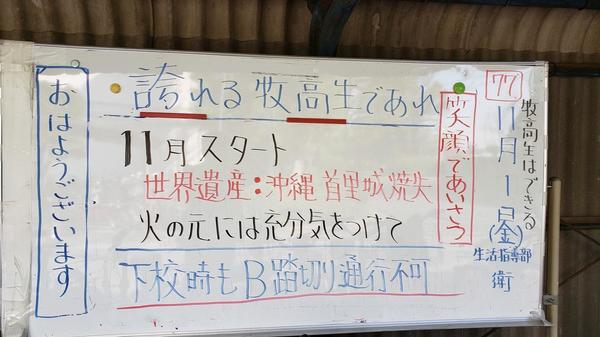 77
牧高生はできる
11月1日(金)
生活指導部
衛
笑顔であいさつ
誇れる牧高生であれ
11月スタート
世界遺産:沖縄 首里城焼失
火の元には充分気をつけて
下校時もB踏切り通行不可
おはようございます